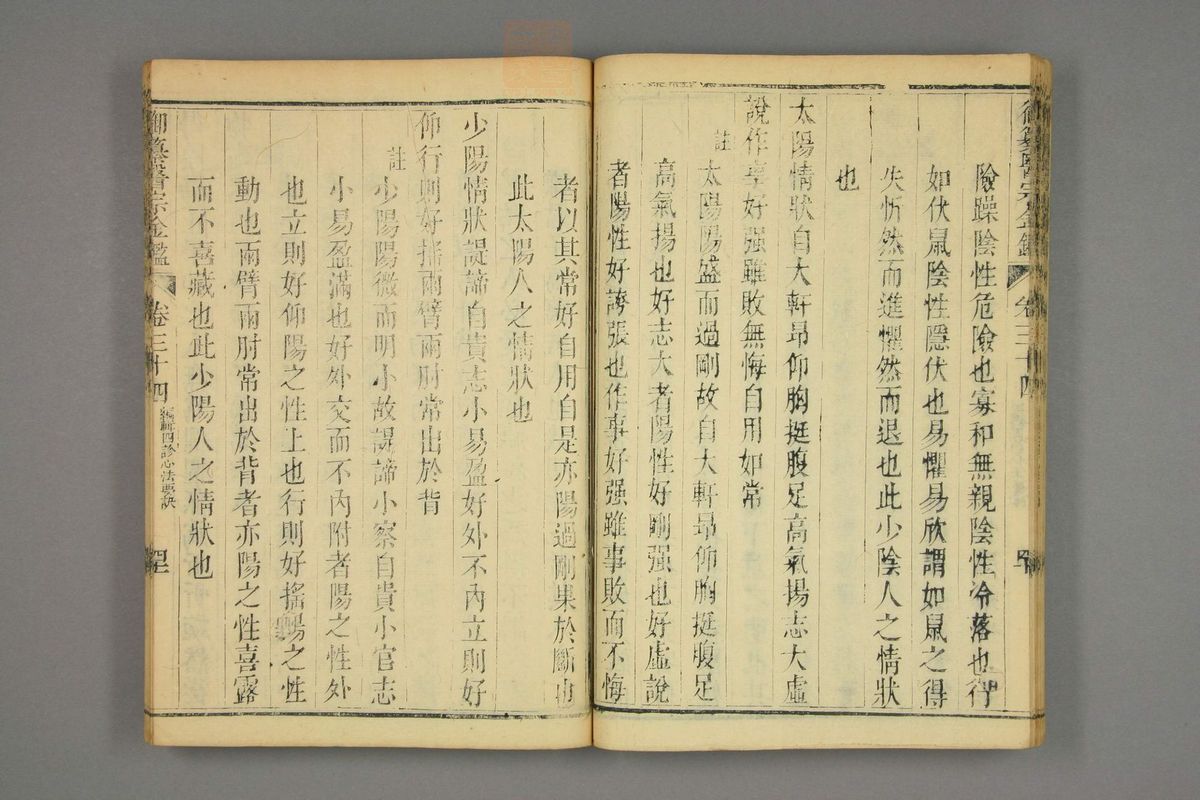 險躁陰性危險也寡和無親陰性冷落也行
如伏鼠陰性隱伏也易懼易欣謂如鼠之得
失忻然而進懼然而退也此少陰人之情狀
也
太陽情狀自大軒昂仰胸挺腹足高氣揚志大虛
說作事好强雖敗無悔自用如常
註
太陽陽盛而過剛故自大軒昂仰胸挺腹足
高氣揚也好志大者陽性好剛强也好虛說
者陽性好誇張也作事好强雖事敗而不悔
御纂醫宗金鑑
卷三十四
者以其常好自用自是亦陽過剛果於斷也
此太陽人之情狀也
少陽情狀諟諦自貴志小易盈好外不內立則好
仰行則好搖兩臂兩肘常出於背
註
少陽陽微而明小故諟諦小察自貴小官志
小易盈滿也好外交而不內附者陽之性外
也立則好仰陽之性上也行則好搖陽之性
動也兩臂兩肘常出於背者亦陽之性喜露
而不喜藏也此少陽人之情狀也
御纂醫宗金鑑
卷三十四
編輯四診心法要訣